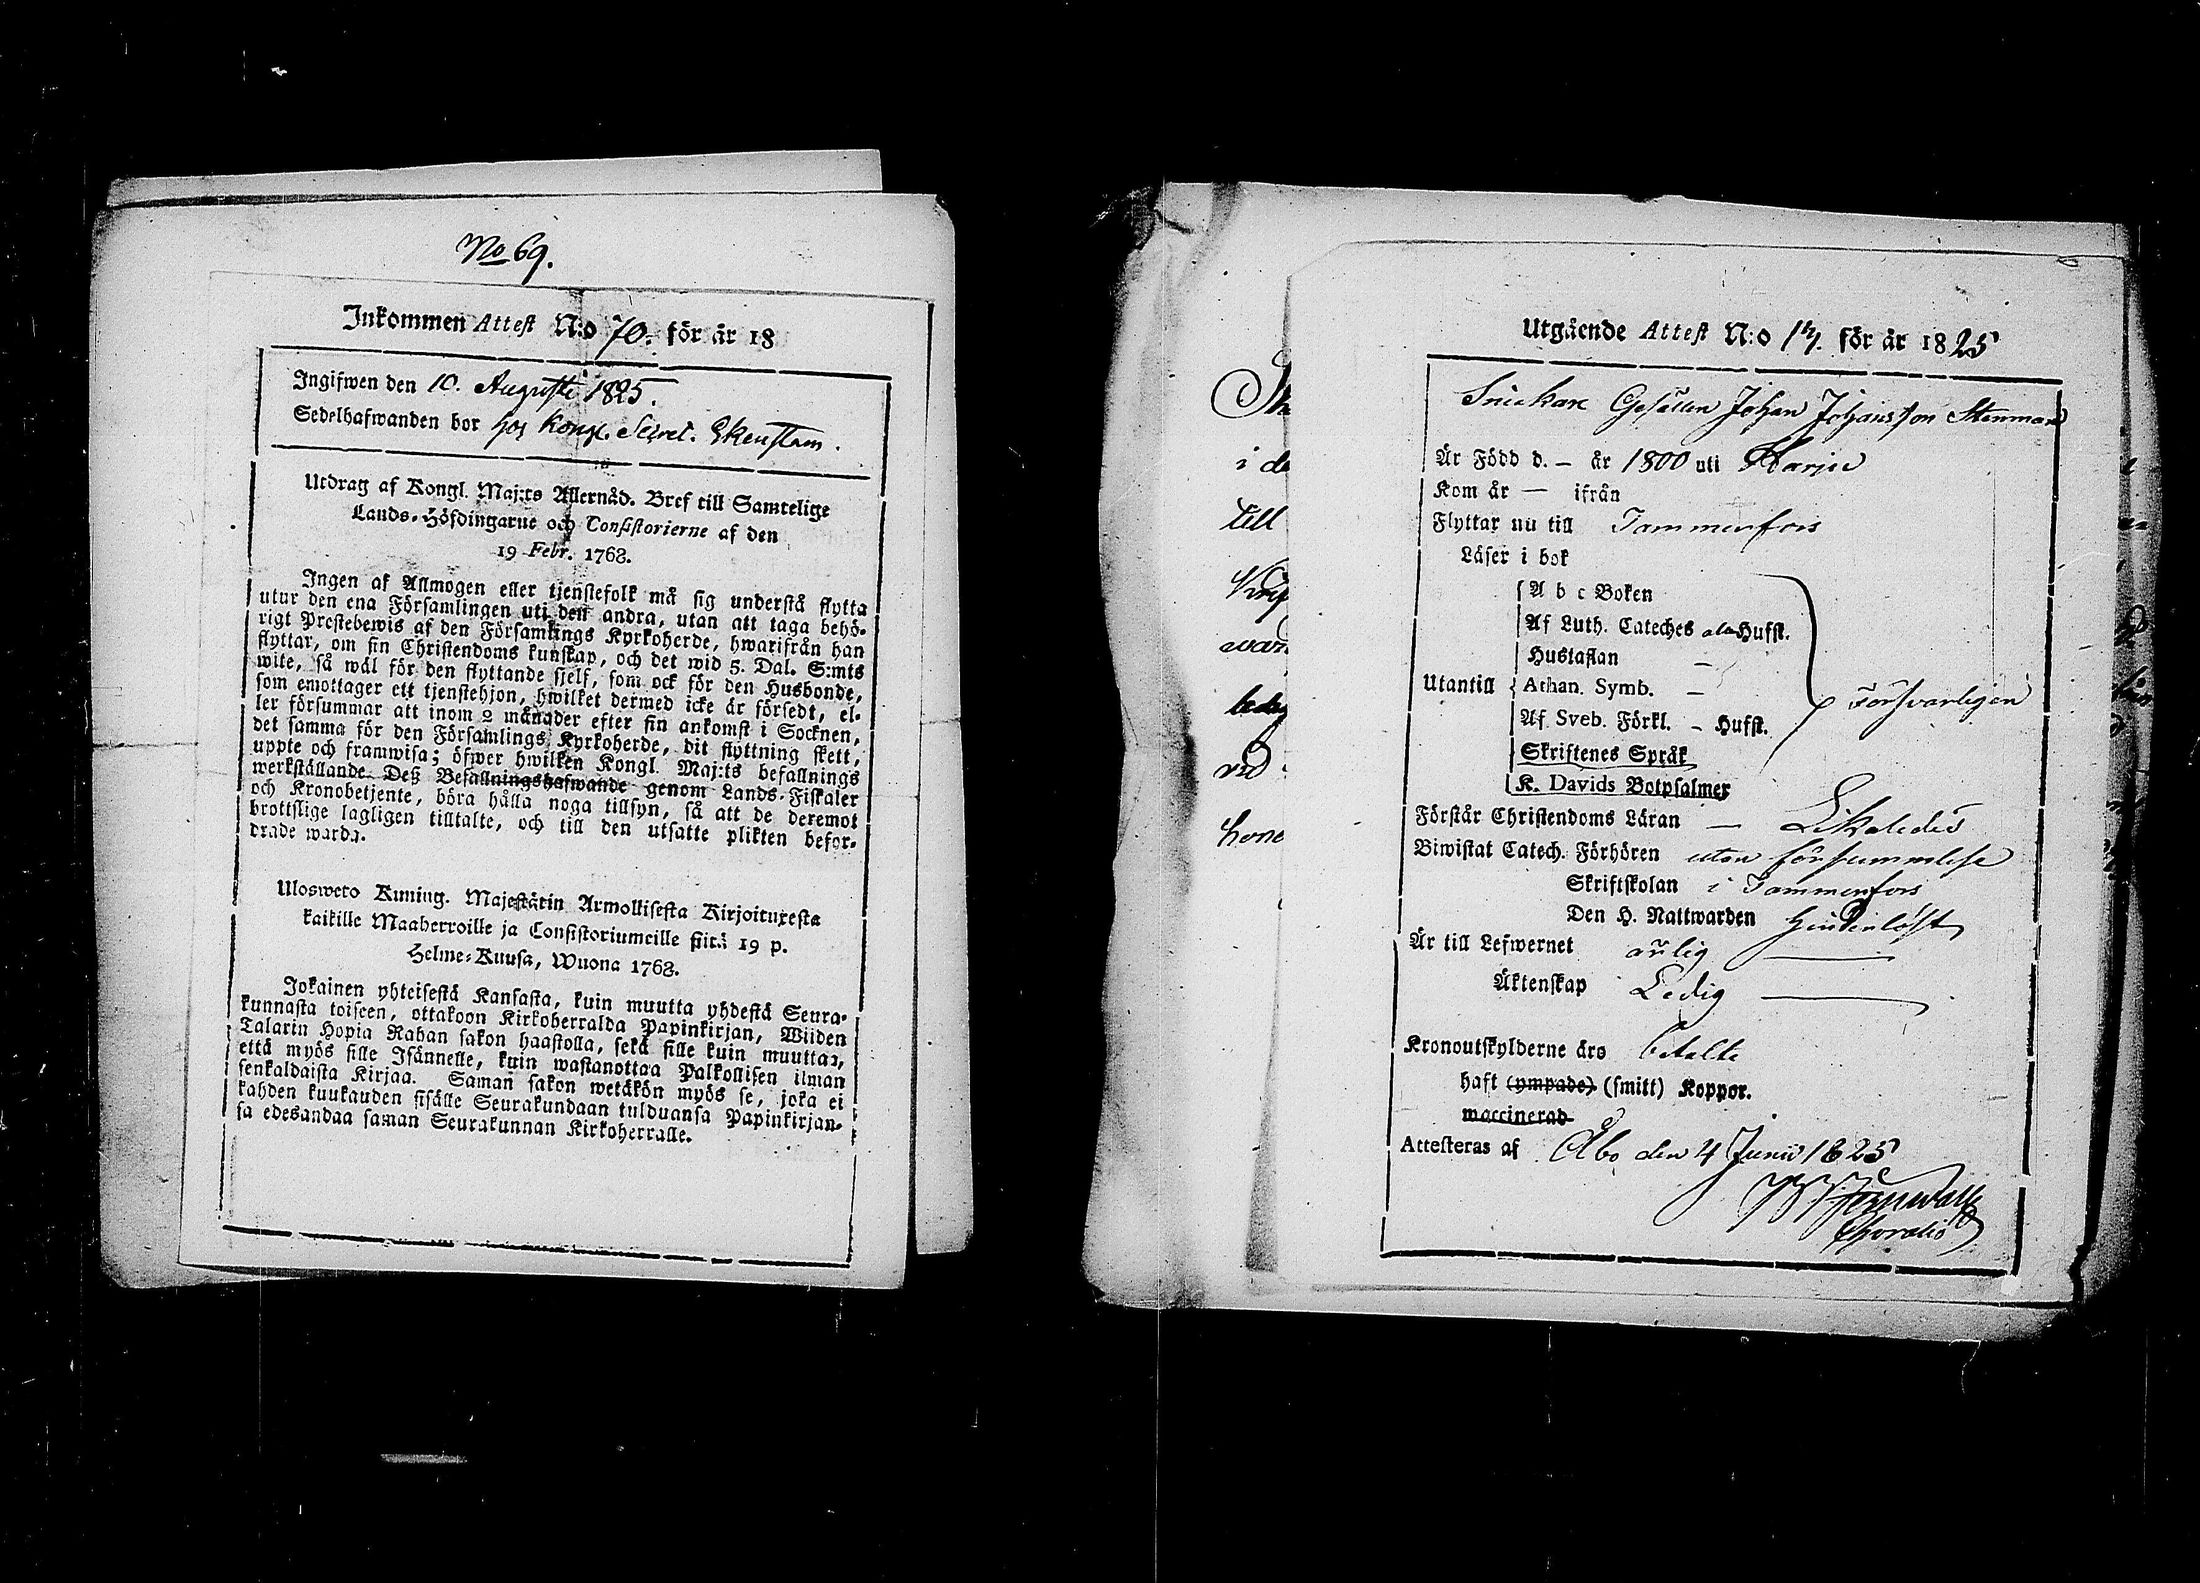 No 69.
Inkommen Attest N:o 70. för år 18
Ingifwen den 10. Augusti 1825.
Sedelhafwanden bor hos Kongl. Secret. Ekenstam.
Utdrag af Kongl. Maj:ts Allernåd. Bref till Samtelige
Lands-Höfdingarne och Consistorierne af den
19 Febr. 1768.
Ingen af Allmogen eller tjenstefolk må sig understå flytta
utur den ena Församlingen uti den andra, utan att taga behö-
rigt Prestebewis af den Församlings Kyrkoherde, hwarifrån han
flyttar, om sin Christendoms kunskap, och det wid 5. Dal. S:mts
wite, så wäl för den flyttande sjelf, som ock för den Husbonde,
som emottager ett tjenstehjon, hwilket dermed icke är försedt, el-
ler försummar att inom 2 månader efter sin ankomst i Socknen,
det samma för den Församlings Kyrkoherde, dit flyttning skett,
uppte och framwisa; öfwer hwilken Kongl. Maj:ts befallnings
werkställande Deß Befallningshafwande genom Lands-Fiskaler
och Kronobetjente, böra hålla noga tillsyn, så att de deremot
brottslige lagligen tilltalte, och till den utsatte plikten befor-
drade warda.
Ulosweto Kuning. Majestätin Armollisesta Kirjoituxesta
kaikille Maaherroille ja Consistoriumeille siitä 19 p.
Helme-Kuusa, Wuona 1768.
Jokainen yhteisestä Kansasta, kuin muutta yhdestä Seura-
kunnasta toiseen, ottakoon Kirkoherralda Papinkirjan, Wiiden
Talarin Hopia Rahan sakon haastolla, sekä sille kuin muuttaa,
että myös sille Isännelle, kuin wastanottaa Palkollisen ilman
senkaldaista Kirjaa. Saman sakon wetäkön myös se, joka ei
kahden kuukauden sisälle Seurakundaan tulduansa Papinkirjan-
sa edesandaa saman Seurakunnan Kirkoherralle.
i de
till
hone
Utgående Attest N:o 14. för år 1825
Snickare Gesällen Johan Johansson Stenman
Är Född d. – år 1800 uti Harju
Kom år — ifrån
Flyttar nu till Tammerfors
Läser i bok
A b c Boken
Af Luth. Cateches Hufst.
Hustaflan –
Utantill Athan. Symb. –
Försvarligen
Af Sveb. Förkl. – Hufst.
Skriftenes Språk
K. Davids Botpsalmer
Förstår Christendoms Läran — Likaledes
Biwistat Catech. Förhören utan försummelse
Skriftskolan i Tammerfors
Den H. Nattwarden hinderlöst
Är till Lefwernet ärlig
Äktenskap Ledig
Kronoutskylderne äro betalte
haft (ympade) (smitt) Koppor.
waccinerad
Attesteras af Åbo den 4 Junii 1825